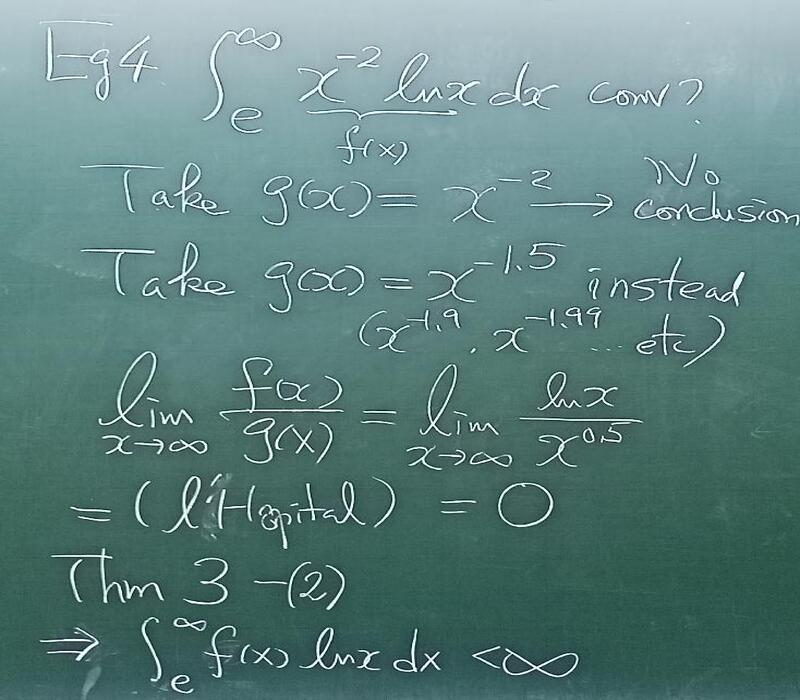 Eg4 ∫_e^∞ x^{-2} lnx dx conv?
f(x)
Take g(x) = x^{-2} → No conclusion
Take g(x) = x^{-1.5} instead
(x^{-1.9}, x^{-1.99} ... etc)
lim_{x→∞} f(x)/g(x) = lim_{x→∞} lnx/x^{0.5}
= (l'Hopital) = 0
Thm 3 -(2)
⇒ ∫_e^∞ f(x) lnx dx < ∞